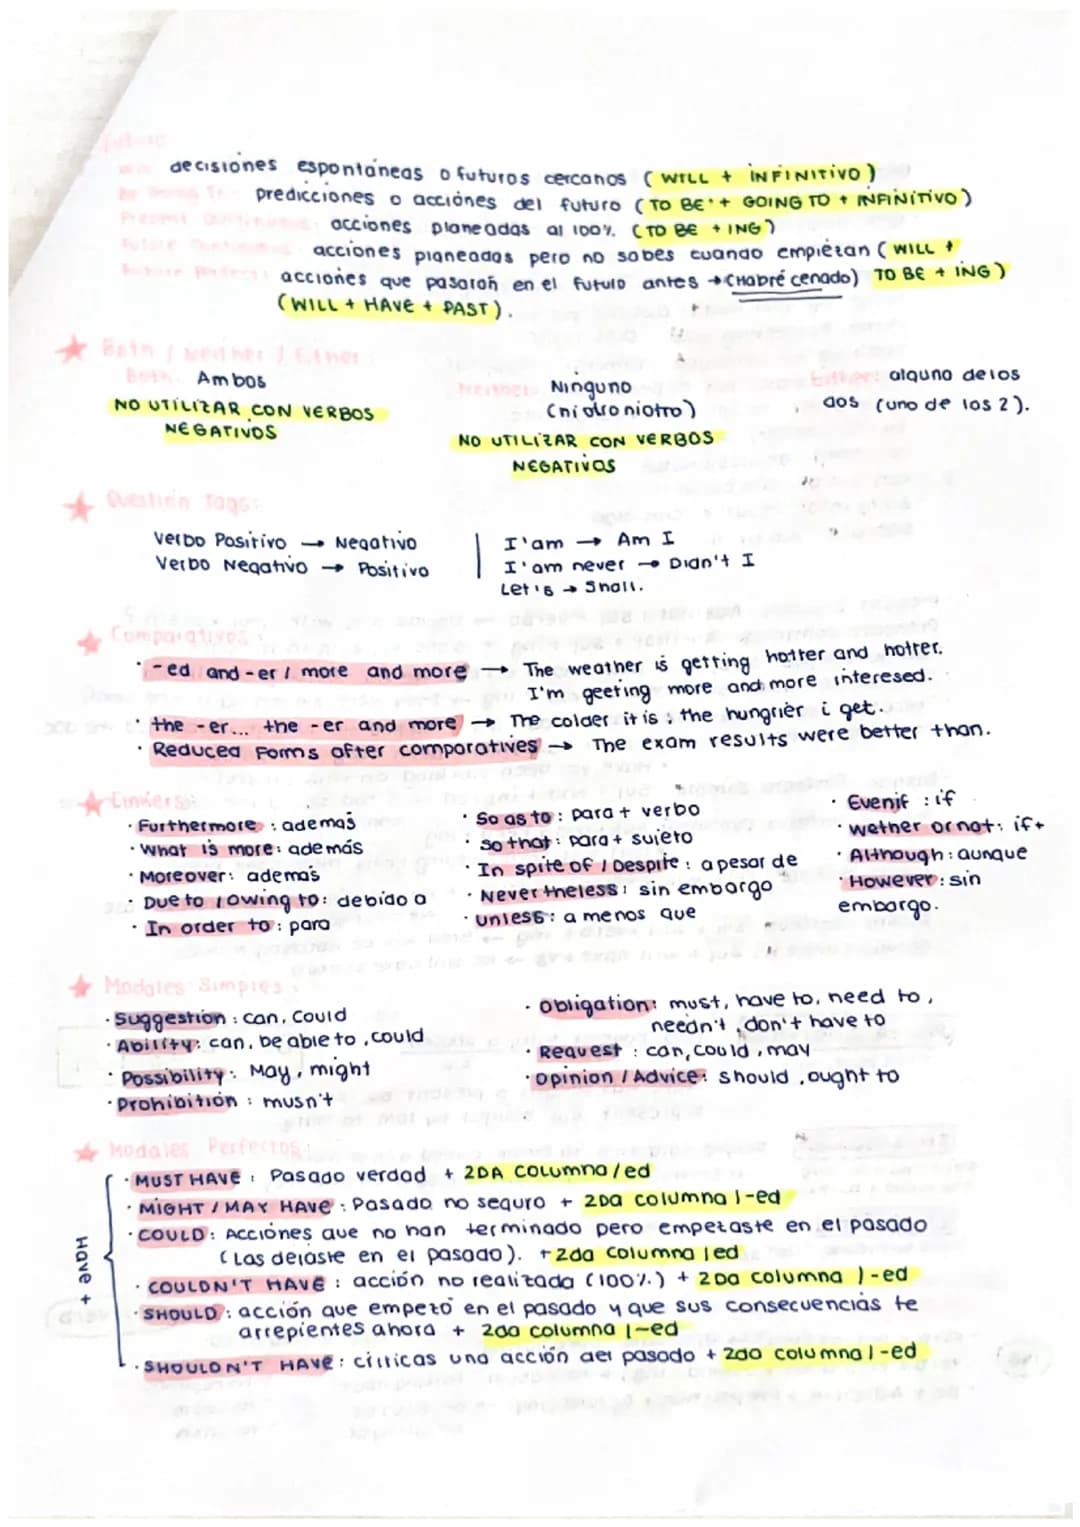 Future:
Will: decisiones espontáneas o futuros cercanos (WILL + INFINITIVO)
Be Going To: predicciones o acciones del futuro (TO BE + GOING TO + INFINITIVO)
Present Continuous: acciones planeadas al 100% (TO BE + ING)
Future Continuous: acciones planeadas pero no sabes cuando empiezan (WILL +
Future Perfect: acciones que pasarán en el futuro antes → (Habré cenado) TO BE + ING)
(WILL + HAVE + PAST).
Both / Neither / Either:
Both: Ambos
NO UTILIZAR CON VERBOS
NEGATIVOS
Neither: Ninguno
(ni otro ni otro)
NO UTILIZAR CON VERBOS
NEGATIVOS
Either: alguno de los
dos (uno de los 2).
Question Tags:
Verbo Positivo → Negativo
Verbo Negativo → Positivo
I'am → Am I
I'am never → Didn't I
Let's → Shall.
Comparativos:
· -ed and -er / more and more → The weather is getting hotter and hotter.
I'm geeting more and more interesed.
· the -er... the -er and more → The colder it is ; the hungrier i get.
· Reduced Forms after comparatives → The exam results were better than.
Linkers:
· Furthermore : además
· What is more: además
· Moreover: además
· Due to / owing to: debido a
· In order to: para
· So as to: para + verbo
· So that: para + sujeto
· In spite of / Despite: a pesar de
· Nevertheless: sin embargo
· Unless: a menos que
· Even if : if
· wether or not: if+
· Although: aunque
· However: sin
embargo.
Modales Simples:
· Suggestion: can, could
· Ability: can, be able to, could
· Possibility: May, might
· Prohibition : musn't
· Obligation: must, have to, need to,
needn't, don't have to
· Request : can, could, may
· Opinion / Advice: should, ought to
Modales Perfectos:
Have +
· MUST HAVE : Pasado verdad + 2DA columna / ed
· MIGHT / MAY HAVE : Pasado no seguro + 2Da columna / -ed
· COULD: Acciones que no han terminado pero empezaste en el pasado
(Las dejaste en el pasado). + 2da columna / ed
· COULDN'T HAVE : acción no realizada (100%) + 2Da columna / -ed
· SHOULD: acción que empezó en el pasado y que sus consecuencias te
arrepientes ahora + 2da columna / -ed
· SHOULDN'T HAVE: críticas una acción del pasado + 2da columna / -ed